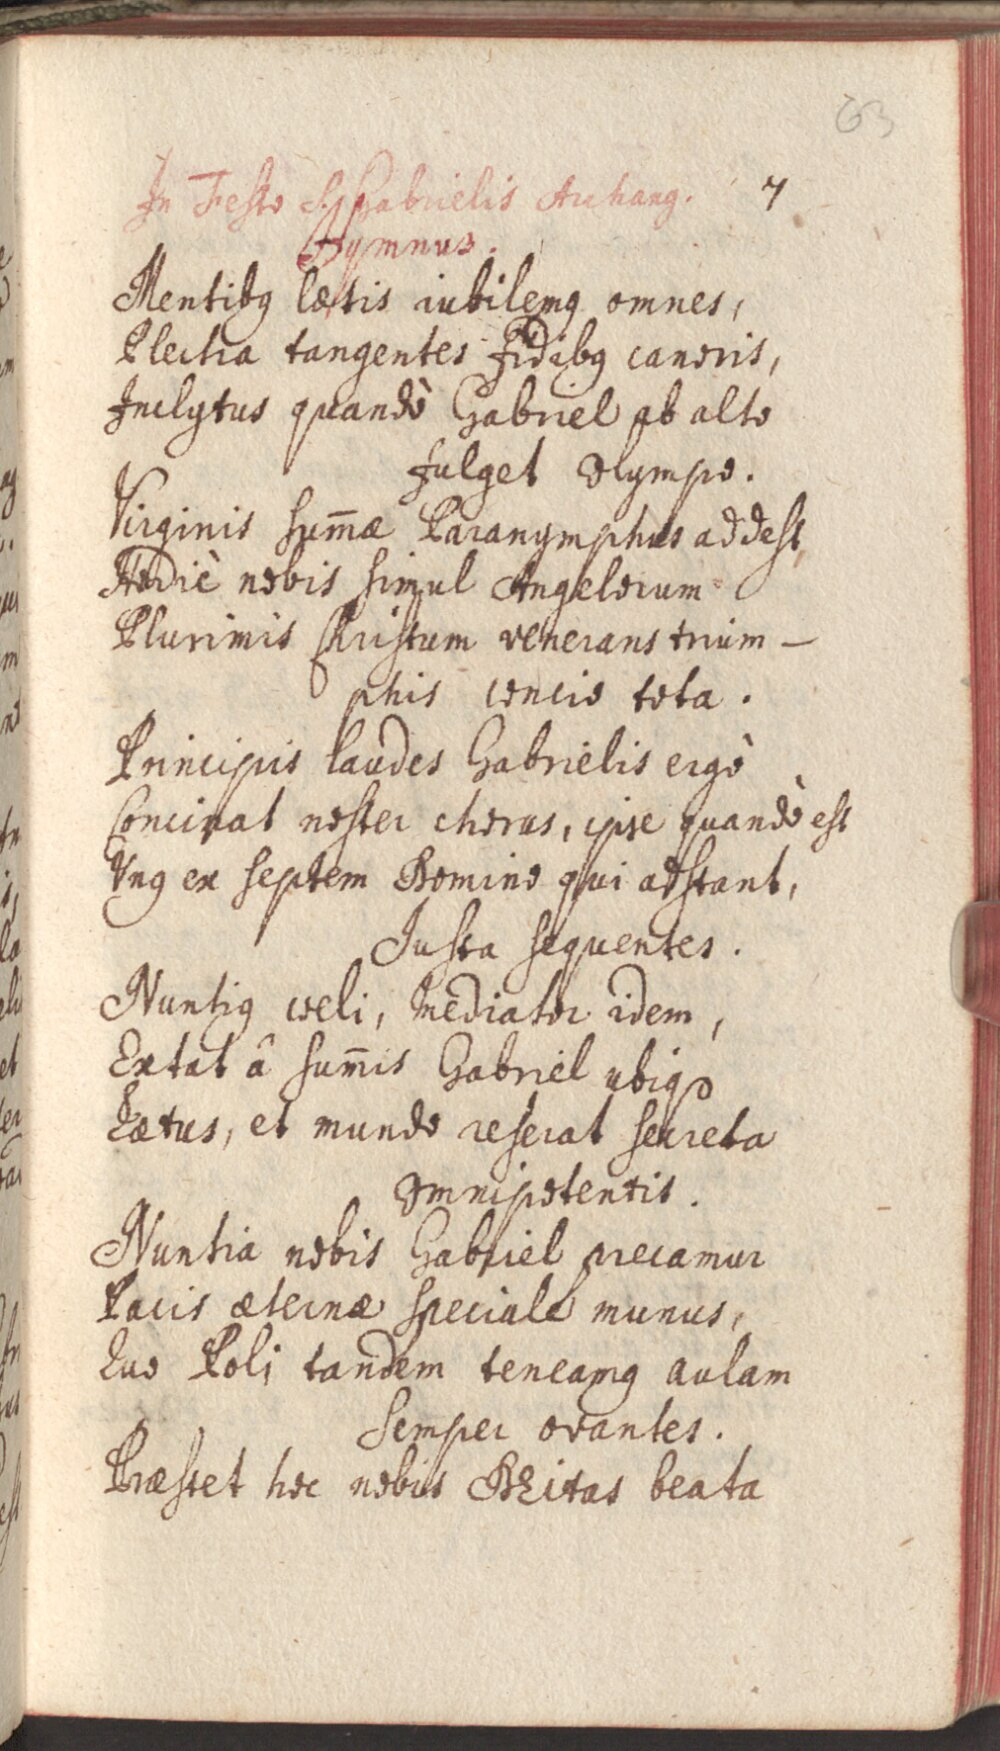 63
In Festo S. Gabrielis Archang. 7
Hymnus.
Mentibꝰ lætis iubilemꝰ omnes,
Plectra tangentes fidibꝰ canoris,
Inclytus quandò Gabriel ab alto
fulget Olympo.
Virginis sum̄æ Paranymphus addest,
Hodiè nobis simul Angelorum
Plurimis Christum venerans trium-
phis concio tota.
Principis laudes Gabrielis ergò
Concinat noster chorus, ipse quandò est
Vnꝰ ex septem Domino qui adstant,
Iussa sequentes.
Nuntiꝰ coeli, mediator idem,
Extat â sum̄is Gabriel ubiqꝫ
Lætus, et mundo reserat secreta
Omnipotentis.
Nuntia nobis Gabriel precamur
Pacis æternæ speciale munus,
Quo Poli tandem teneamꝰ aulam
Semper ovantes.
Præstet hoc nobis DEitas beata